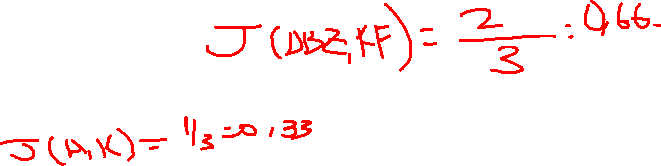 J(DBZ,KF) = 2/3 = 0,66.
J(A,K) = 1/3 = 0,33